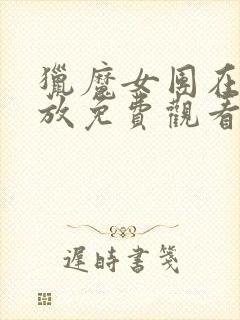 獵魔女團在
放免費觀看
遲時書箋